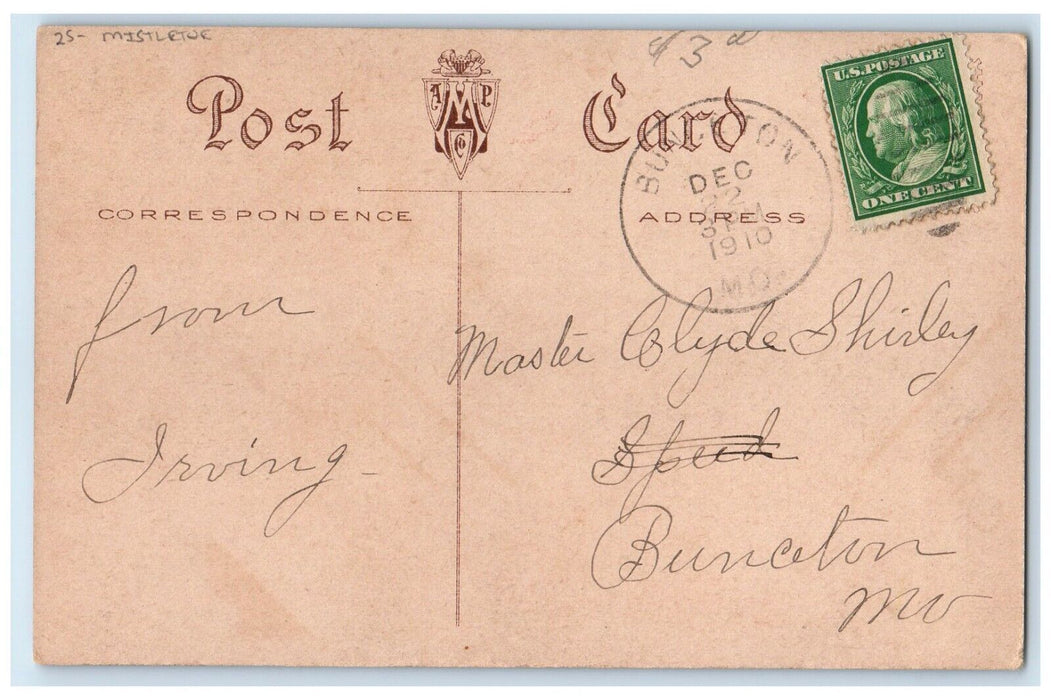 25- MISTLETOE
$3
Post Card
A M P
Co
U.S. POSTAGE
ONE CENT
BUNCETON
DEC
1910
MO.
CORRESPONDENCE
ADDRESS
from
Irving -
Master Clyde Shirley
Speed
Bunceton
Mo